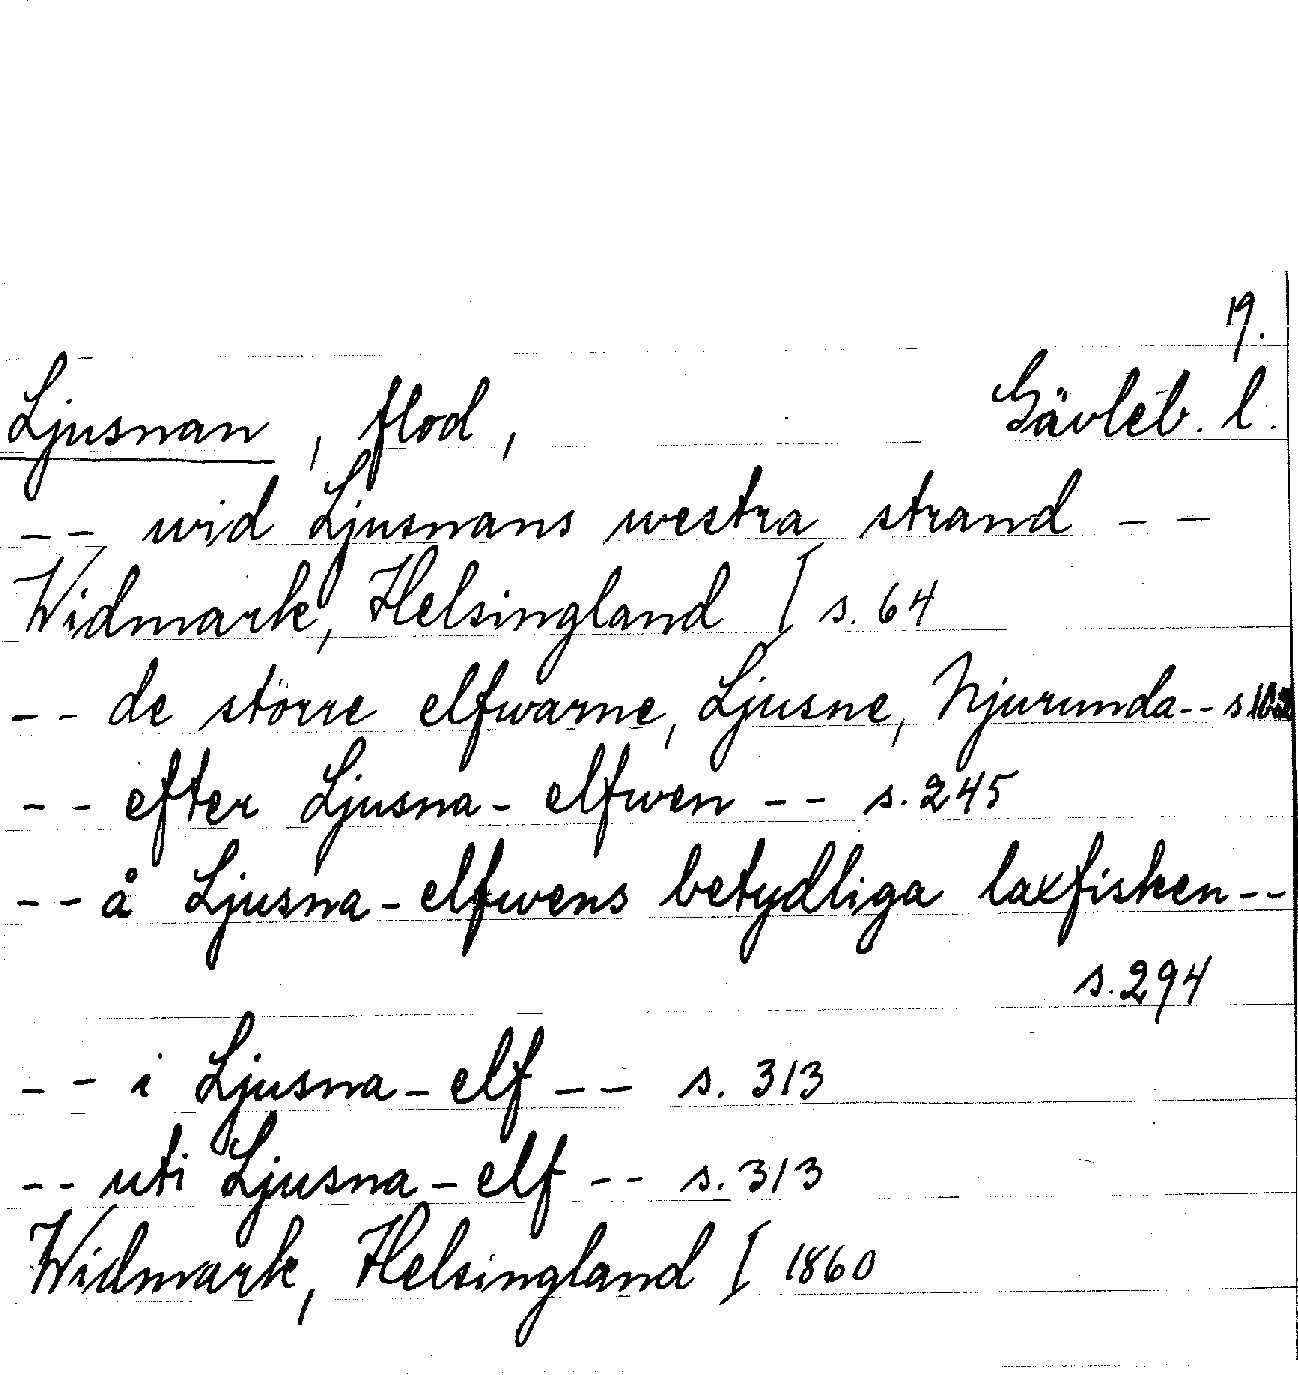 19.
Ljusnan, flod, Gävleb. l.
-- wid Ljusnans westra strand --
Widmark, Helsingland I s. 64
-- de större elfwarne, Ljusne, Njurunda-- s
-- efter Ljusna-elfwen -- s. 245
-- å Ljusna-elfwens betydliga laxfisken--
s. 294
-- i Ljusna-elf -- s. 313
-- uti Ljusna-elf -- s. 313
Widmark, Helsingland I 1860